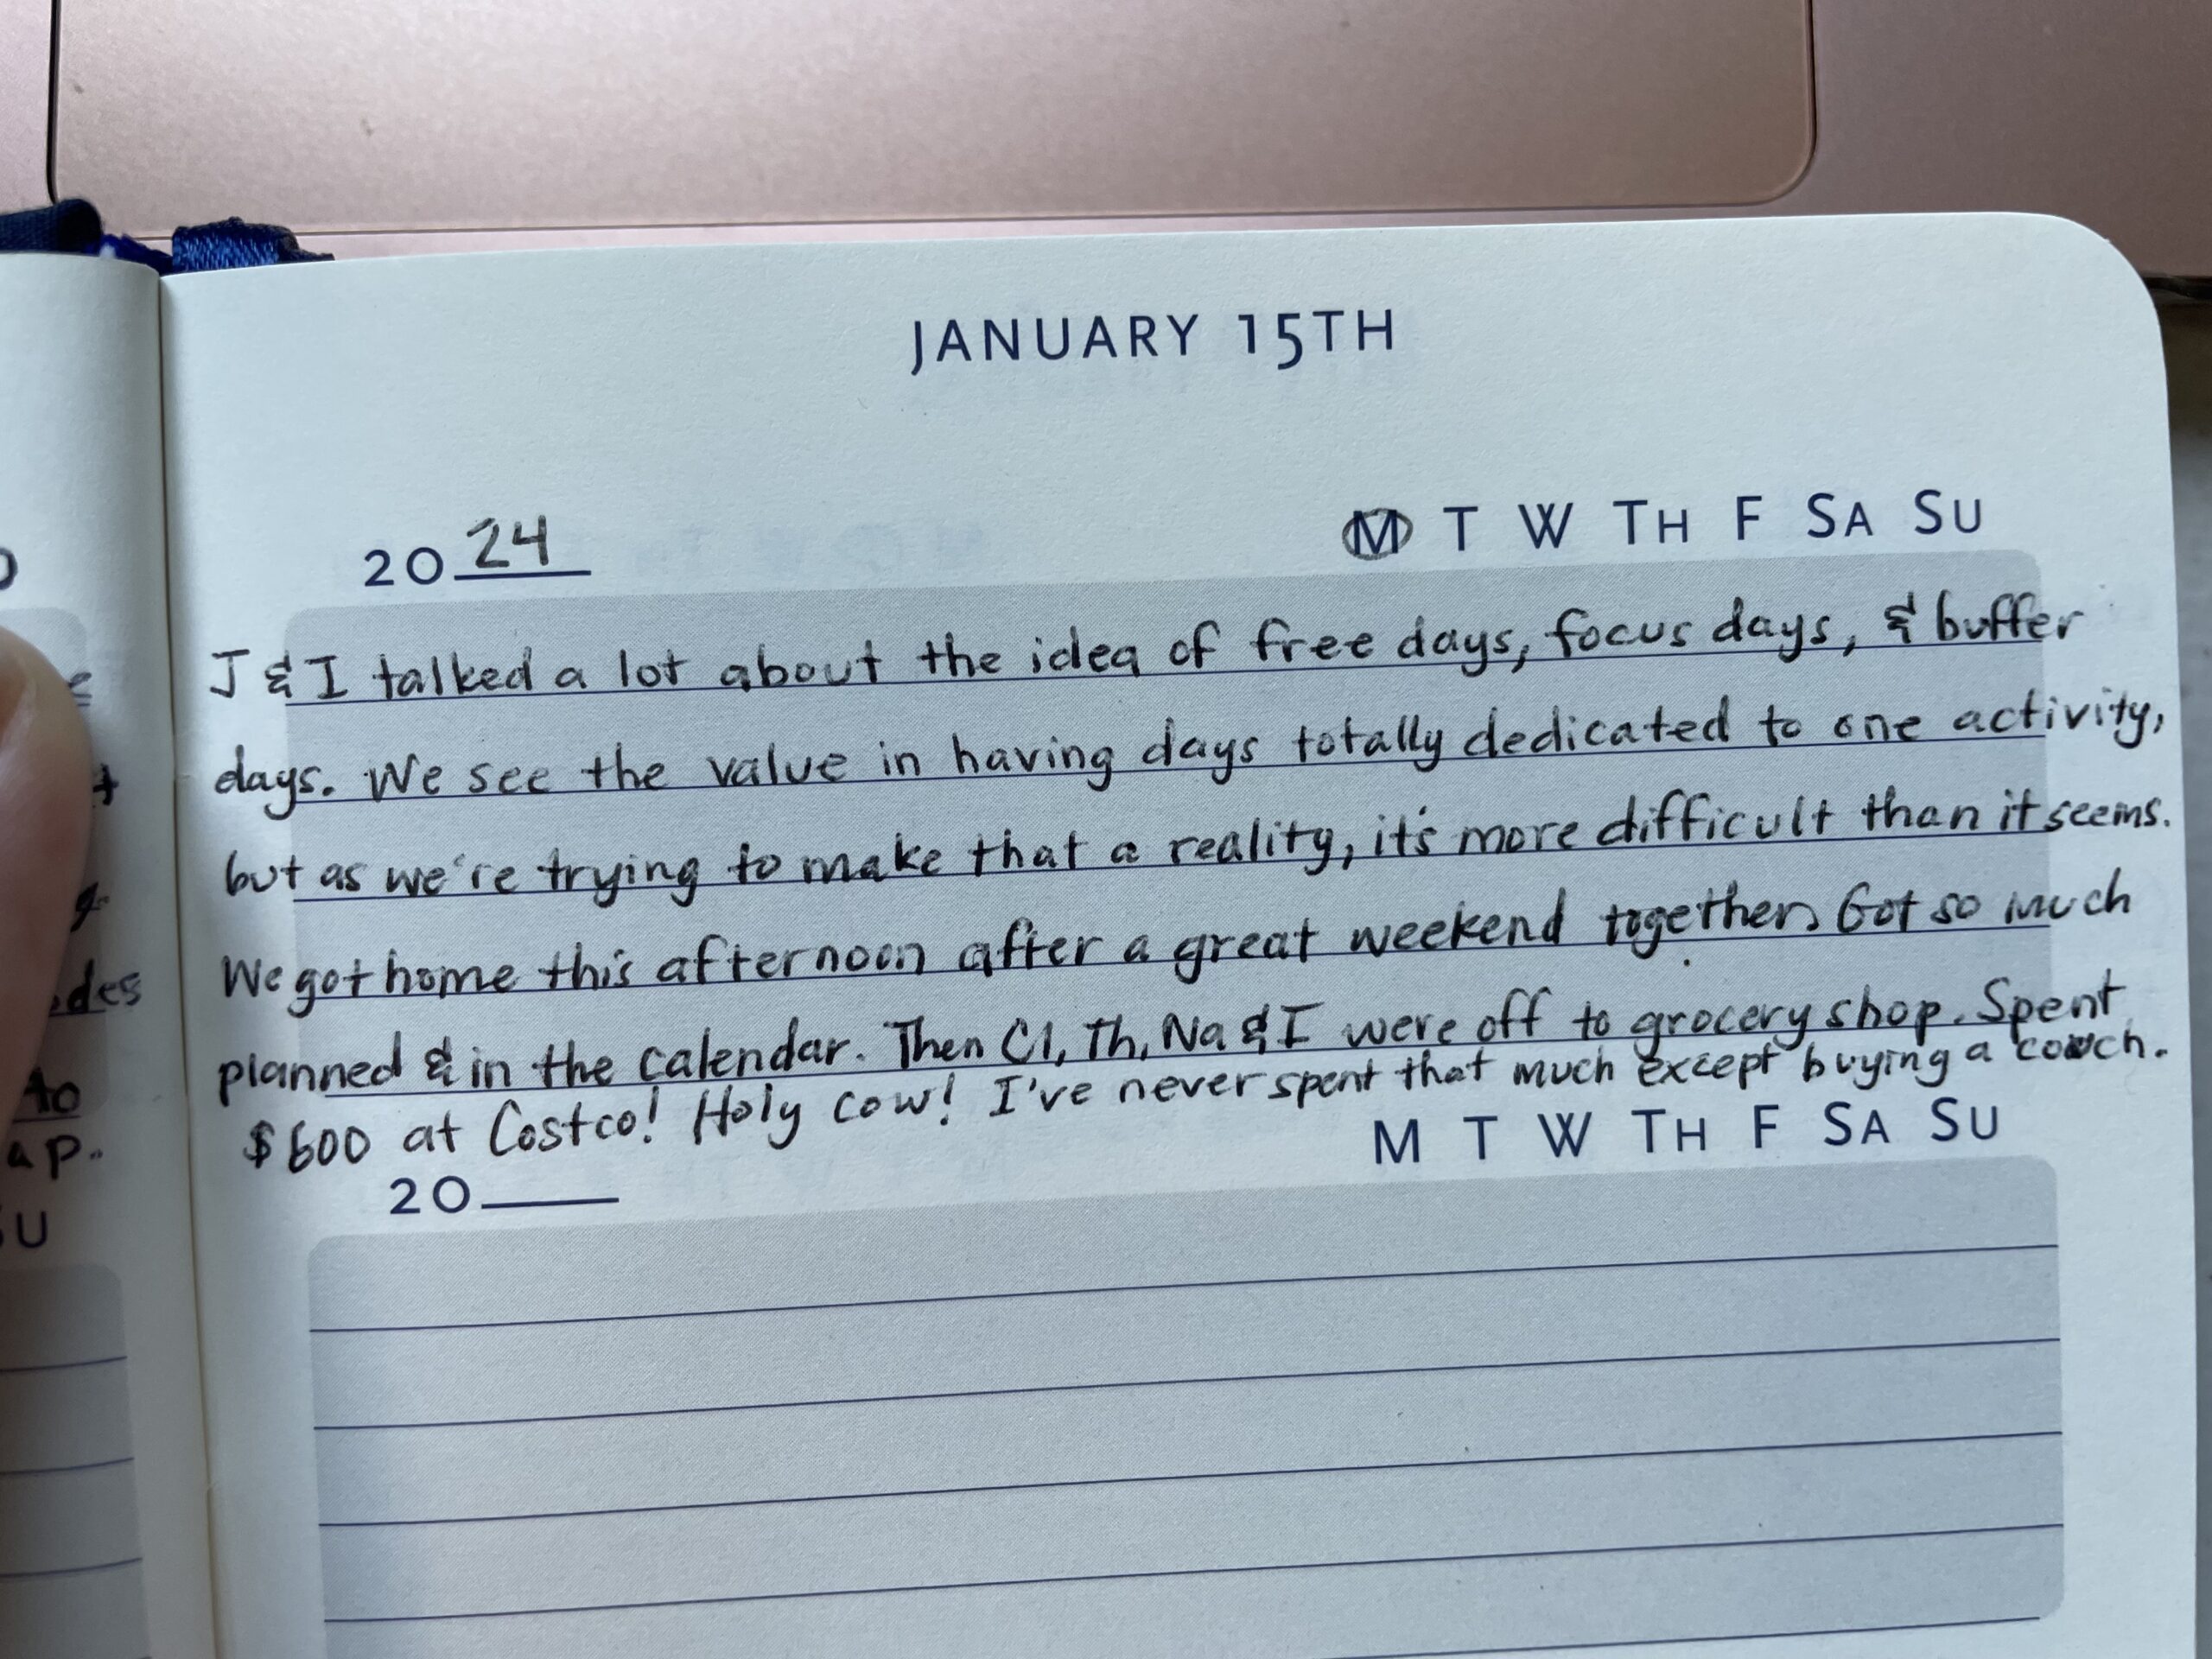 JANUARY 15TH
2024 M T W TH F SA SU
J & I talked a lot about the idea of free days, focus days, & buffer
days. We see the value in having days totally dedicated to one activity,
but as we're trying to make that a reality, it's more difficult than it seems.
We got home this afternoon after a great weekend together. Got so much
planned & in the calendar. Then Cl, Th, Na & I were off to grocery shop. Spent
$600 at Costco! Holy cow! I've never spent that much except buying a couch.
20 M T W TH F SA SU
des
to
ap.
SU